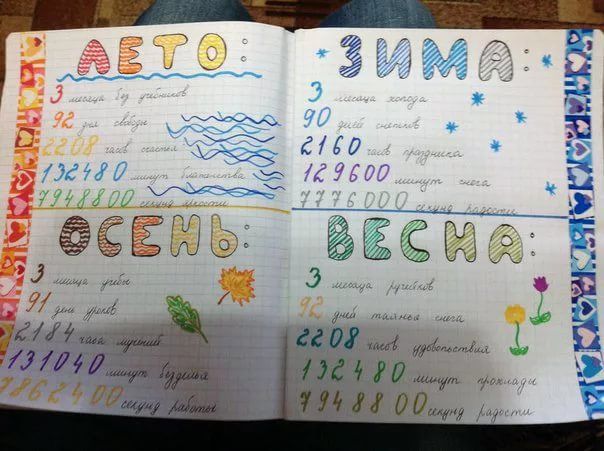 ЛЕТО:
3 месяца без учебников
92 дня свободы
2208 часов счастья
132480 минут блаженства
7948800 секунд
ОСЕНЬ:
3 месяца учебы
91 день уроков
2184 часа мучений
131040 минут безделья
7862400 секунд работы
ЗИМА:
3 месяца холода
90 дней снежков
2160 часов праздника
129600 минут снега
7776000 секунд радости
ВЕСНА:
3 месяца ручейков
92 дней таянья снега
2208 часов удовольствия
132480 минут прохлады
7948800 секунд радости